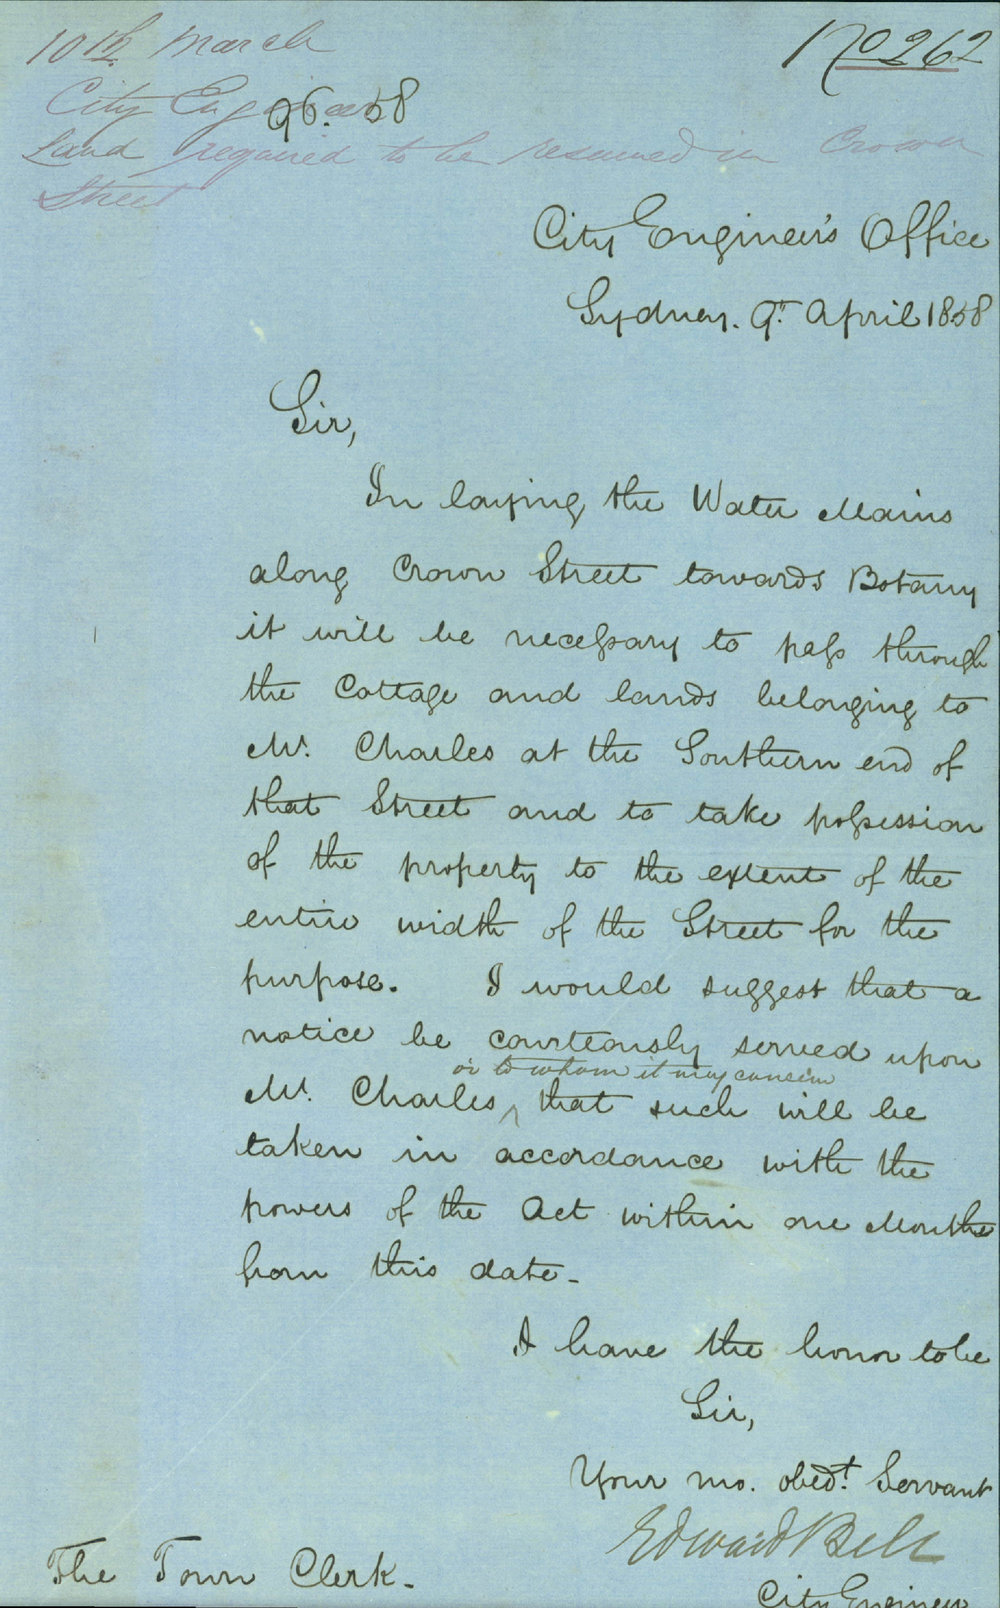 10th. March
No 262
City Engineer
96. 58
Land required to be resumed in Crown
Street
City Engineer's Office
Sydney. 9th April 1858
Sir,
In laying the Water Mains
along Crown Street towards Botany
it will be necessary to pass through
the Cottage and lands belonging to
Mr. Charles at the Southern end of
that Street and to take possession
of the property to the extent of the
entire width of the Street for the
purpose. I would suggest that a
notice be courteously served upon
or to whom it may concern
Mr. Charles ^ that such will be
taken in accordance with the
powers of the Act within one Months
from this date-
I have the honor to be
Sir,
Your mo. obedt. Servant
Edward Bell
City Engineer
The Town Clerk-